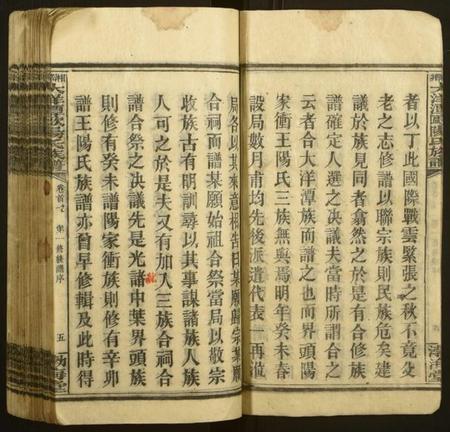 者以丁此國際戰雲緊張之秋不竟
老之志修譜以聯宗族則民族危矣建
議於族見同者翕然之於是有合修族
譜確定人選之决議夫當時所謂合之
云者合大洋潭族而譜之也而界頭陽
家衝王陽氏三族無與焉明年癸未春
設局數月甫均先後派遣代表一再
局各以其來意
合祠而譜某願始祖合祭當局以敬宗
收族古有明訓尋以其事謀諸族人族
人可之於是夫又有加入三族合祠合
譜合祭之决議先是光譜中葉界頭族
則修有癸未譜陽家衝族則修有辛卯
譜王陽氏族譜亦曾早修輯及此時得
大洋潭歐陽氏族譜
卷首之
第一
終後譜序
五
渤海堂
大洋潭歐陽氏族譜
渤海堂